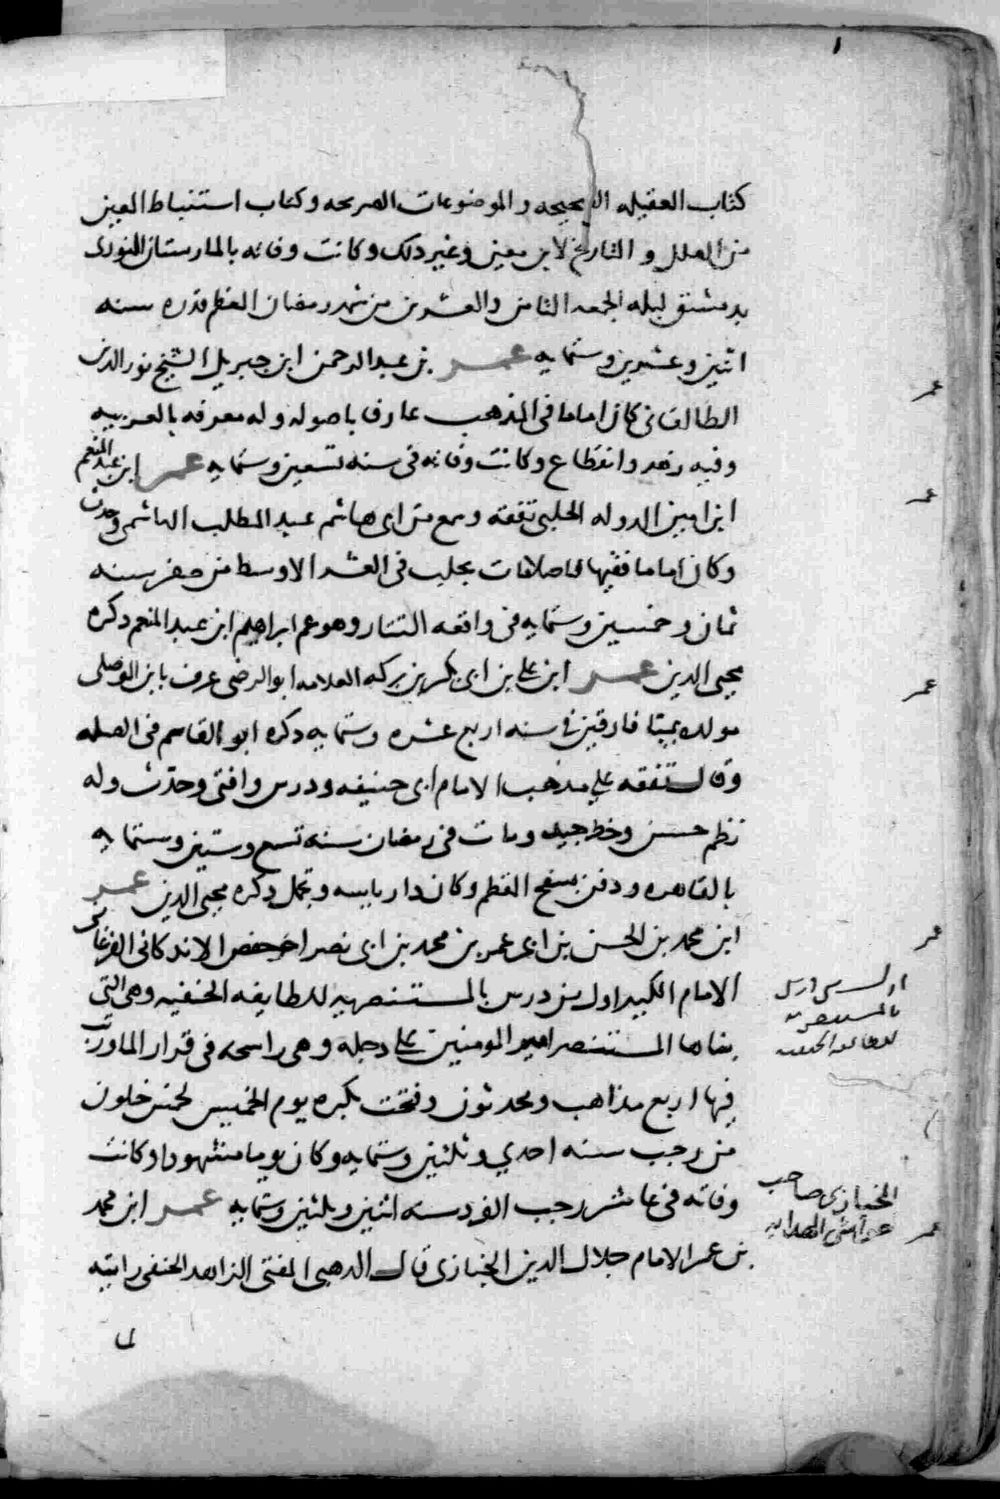 ١
كتاب العقيله الصحيحه والموضوعات الصريحه وكتاب استنباط العين
من العلل و التاريخ لابن معين وغير ذلك وكانت وفاته بالمارستان النورى
بدمشق ليله الجمعه الثامن والعشرين من شهر رمضان المعظم قدره سنه
اثنين وعشرين وستمايه عمر بن عبد الرحمن ابن جبريل الشيخ نور الدين
الطالقانى كان اماما فى المذهب عارفا باصوله وله معرفه بالعربيه
وفيه زهد وانقطاع وكانت وفاته فى سنه تسعين وستمايه عمر ابن عبد المنعم
ابن امين الدوله الحلبى تفقه وسمع من ابى هاشم عبد المطلب الهاشمى وحدث
وكان اماما فقيها فاضلا مات بحلب فى العشر الاوسط من صفر سنه
ثمان وخمسين وستمايه فى واقعه التتار وهو عم ابراهيم ابن عبد المنعم ذكره
محيى الدين عمر ابن على بن ابى بكر بن بركه العلامه ابو الرضى عرف بابن الموصلى
مولده بميتا فارقين فى سنه اربع عشره وستمايه ذكره ابو القاسم فى الصله
وقال تفقه على مذهب الامام ابى حنيفه ودرس وافتى وحدث وله
نظم حسن وخط جيد ومات فى رمضان سنه تسع وستين وستمايه
بالقاهره ودفن بسفح المقطم وكان دار يابسه وتجمل ذكره محيى الدين عمر
ابن محمد بن الحسن بن ابى عمر بن محمد بن ابى نصر ابو حفص الاندكانى الفرغانى
الامام الكبير اول من درس بالمستنصريه للطايفه الحنفيه وهى التى
بناها المستنصر امير المومنين على دجله وهى راسخه فى قرار الما ورتب
فيها اربع مذاهب ومحدثون وفتحت بكره يوم الخميس لخمس خلون
من رجب سنه احدي وثلثين وستمايه وكان يوما مشهودا وكانت
وفاته فى عاشر رجب الفرد سنه اثنين وثلثين وستمايه عمر ابن محمد
بن عمر الامام جلال الدين الخبازى قال الذهبى المفتى الزاهد الحنفى رايته
عمر
عمر
عمر
عمر
اول من درس
بالمستنصريه
للطايفه الحنفيه
الخبازى صاحب
حواشى الهدايه
عمر